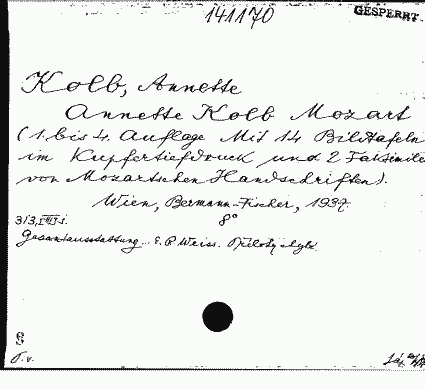 141170
GESPERRT
Kolb, Annette
Annette Kolb Mozart
(1. bis 4. Auflage Mit 14 Bildtafeln
im Kupfertiefdruck und 2 Faksimile
von Mozartschen Handschriften).
Wien, Bermann-Fischer, 1937.
8°
Gesamtausstattung E. P. Weiss.